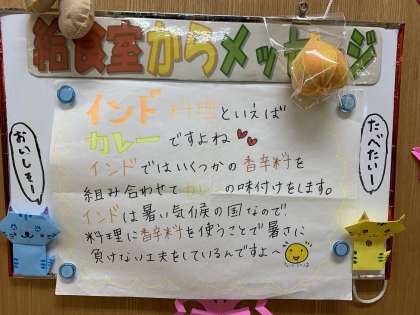 給食室からメッセージ
インド料理といえば
カレーですよね
インドではいくつかの香辛料を
組み合わせてカレーの味付けをします。
インドは暑い気候の国なので
料理に香辛料を使うことで暑さに
負けない工夫をしているんですよ〜
おいしそー!
たべたいー!